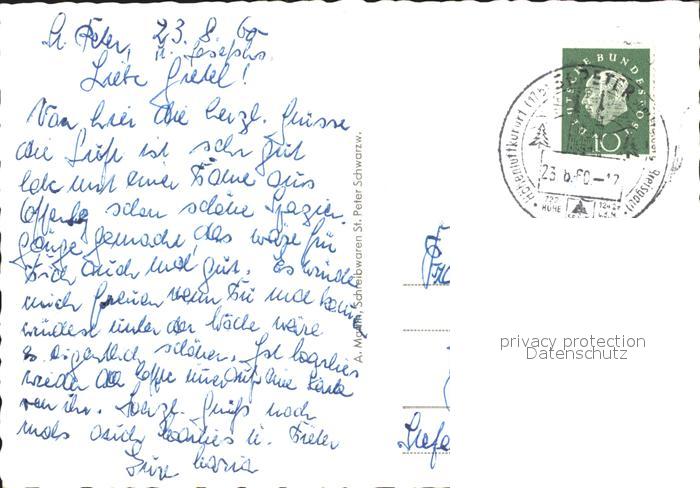 St. Peter, 23. 8. 60
St. Josephs.
Liebe Gretel!
Von hier die herzl. Grüsse
die Luft ist sehr gut
habe mit einer Dame aus
Offenbg schon schöne Spazier
gänge gemacht das wäre für
Dich auch mal gut. Es würde
mich freuen wenn Du mal kommen
würdest unter der Woche wäre
es eigentlich schöner. Ist
wieder da hoffe immer auf eine Karte
von ihr. Herzl. Grüß noch
mals auch u. Dieter
Deine Maria
A. Martin, Schreibwaren St. Peter Schwarzw.
DEUTSCHE BUNDESPOST
10
ST. PETER
Höhenluftkurort
23.8.60-12
HÖHE
privacy protection
Datenschutz